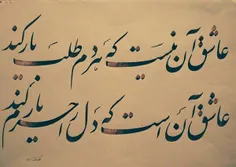 عاشق آن نیست که هر دم طلب یار کند
عاشق آن است که دل را حرم یار کند